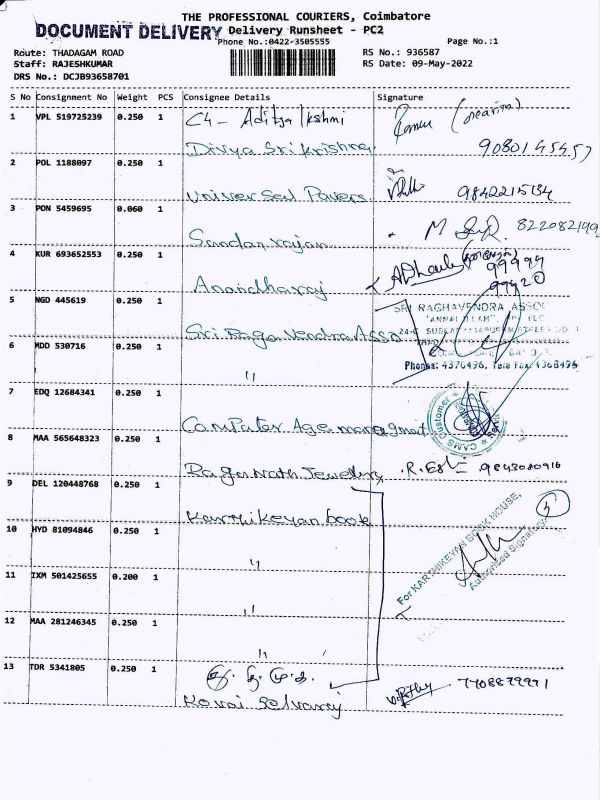 THE PROFESSIONAL COURIERS, Coimbatore
DOCUMENT DELIVERY Delivery Runsheet - PC2
Phone No.:0422-3505555 Page No.:1
Route: THADAGAM ROAD RS No.: 936587
Staff: RAJESHKUMAR RS Date: 09-May-2022
DRS No.: DCJB93658701
S No Consignment No Weight PCS Consignee Details Signature
1 VPL 519725239 0.250 1 C4 - Aditya lkshmi
Divya Sri Krishna 9080145457
2 POL 1188097 0.250 1
Universal Pavers 9842215134
3 PON 5459695 0.060 1 M 822082199
Sandanrajan
4 KUR 693652553 0.250 1 99999
Anandharaj 99420
5 NGD 445619 0.250 1 SRI RAGHAVENDRA ASSO
Sri Raga Vendra Asso
6 MDD 530716 0.250 1 Phones: 4376496, Tele Fax: 4368496
"
7 EDQ 12684341 0.250 1 CAMS Customer
Computer Age managmant
8 MAA 565648323 0.250 1
Ragunath Jewellery 9843080916
9 DEL 120448768 0.250 1
Karthikeyan book For KARTHIKEYAN BOOK HOUSE, 5
10 HYD 81094846 0.250 1 Authorised Signatory
"
11 IXM 501425655 0.200 1
"
12 MAA 281246345 0.250 1
"
13 TDR 5341805 0.250 1
Kovai Selvaraj 7708879971